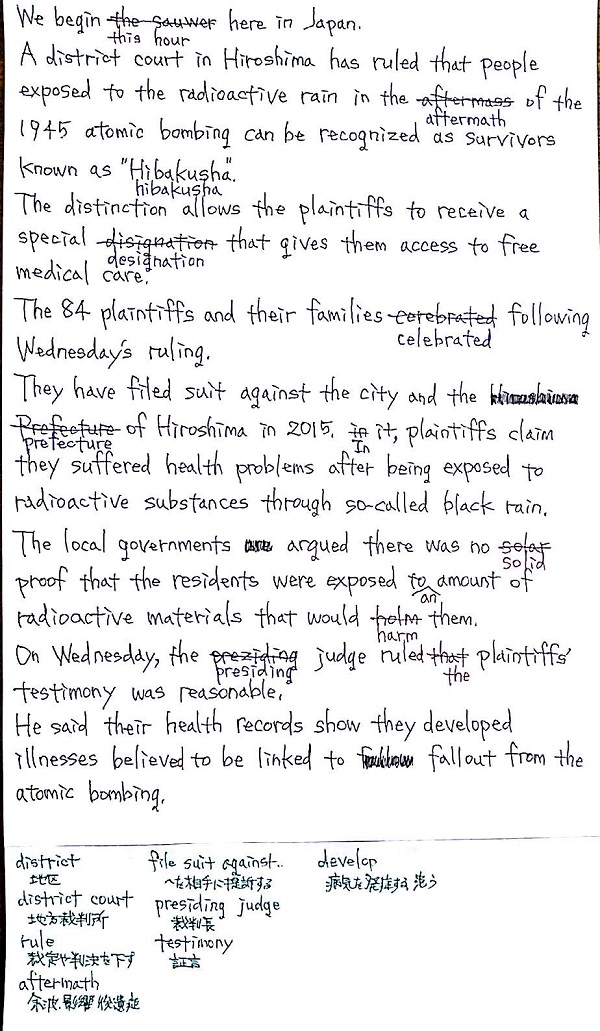 We begin the sauwer here in Japan.
this hour
A district court in Hiroshima has ruled that people
exposed to the radioactive rain in the aftermass of the
aftermath
1945 atomic bombing can be recognized as survivors
known as "Hibakusha".
hibakusha
The distinction allows the plaintiffs to receive a
special disignation that gives them access to free
designation
medical care.
The 84 plaintiffs and their families cerebrated following
celebrated
Wednesday's ruling.
They have filed suit against the city and the Hiroshima
Prefecture of Hiroshima in 2015. in it, plaintiffs claim
prefecture In
they suffered health problems after being exposed to
radioactive substances through so-called black rain.
The local governments are argued there was no solar
solid
proof that the residents were exposed to amount of
an
radioactive materials that would holm them.
harm
On Wednesday, the preziding judge ruled that plaintiffs'
presiding the
testimony was reasonable.
He said their health records show they developed
illnesses believed to be linked to fallout from the
atomic bombing.
district file suit against.. develop
地区 〜を相手に提訴する 病気を発症する, 患う
district court presiding judge
地方裁判所 裁判長
rule testimony
裁定や判決を下す 証言
aftermath
余波, 影響, 後遺症